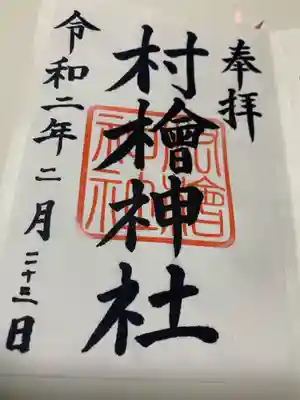 奉拝
村檜神社
令和二年二月二十三日